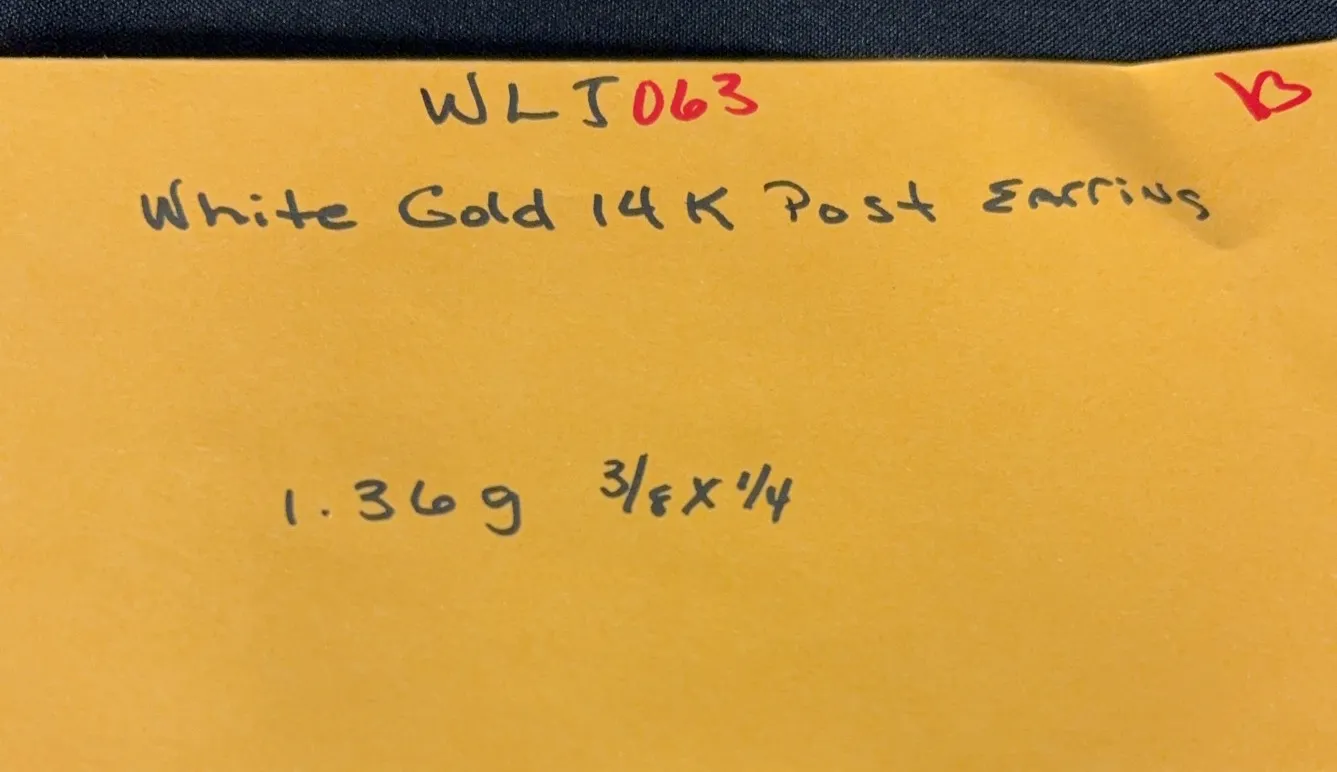 WLJ063
White Gold 14K Post Earring
1.36g 3/8 X 1/4